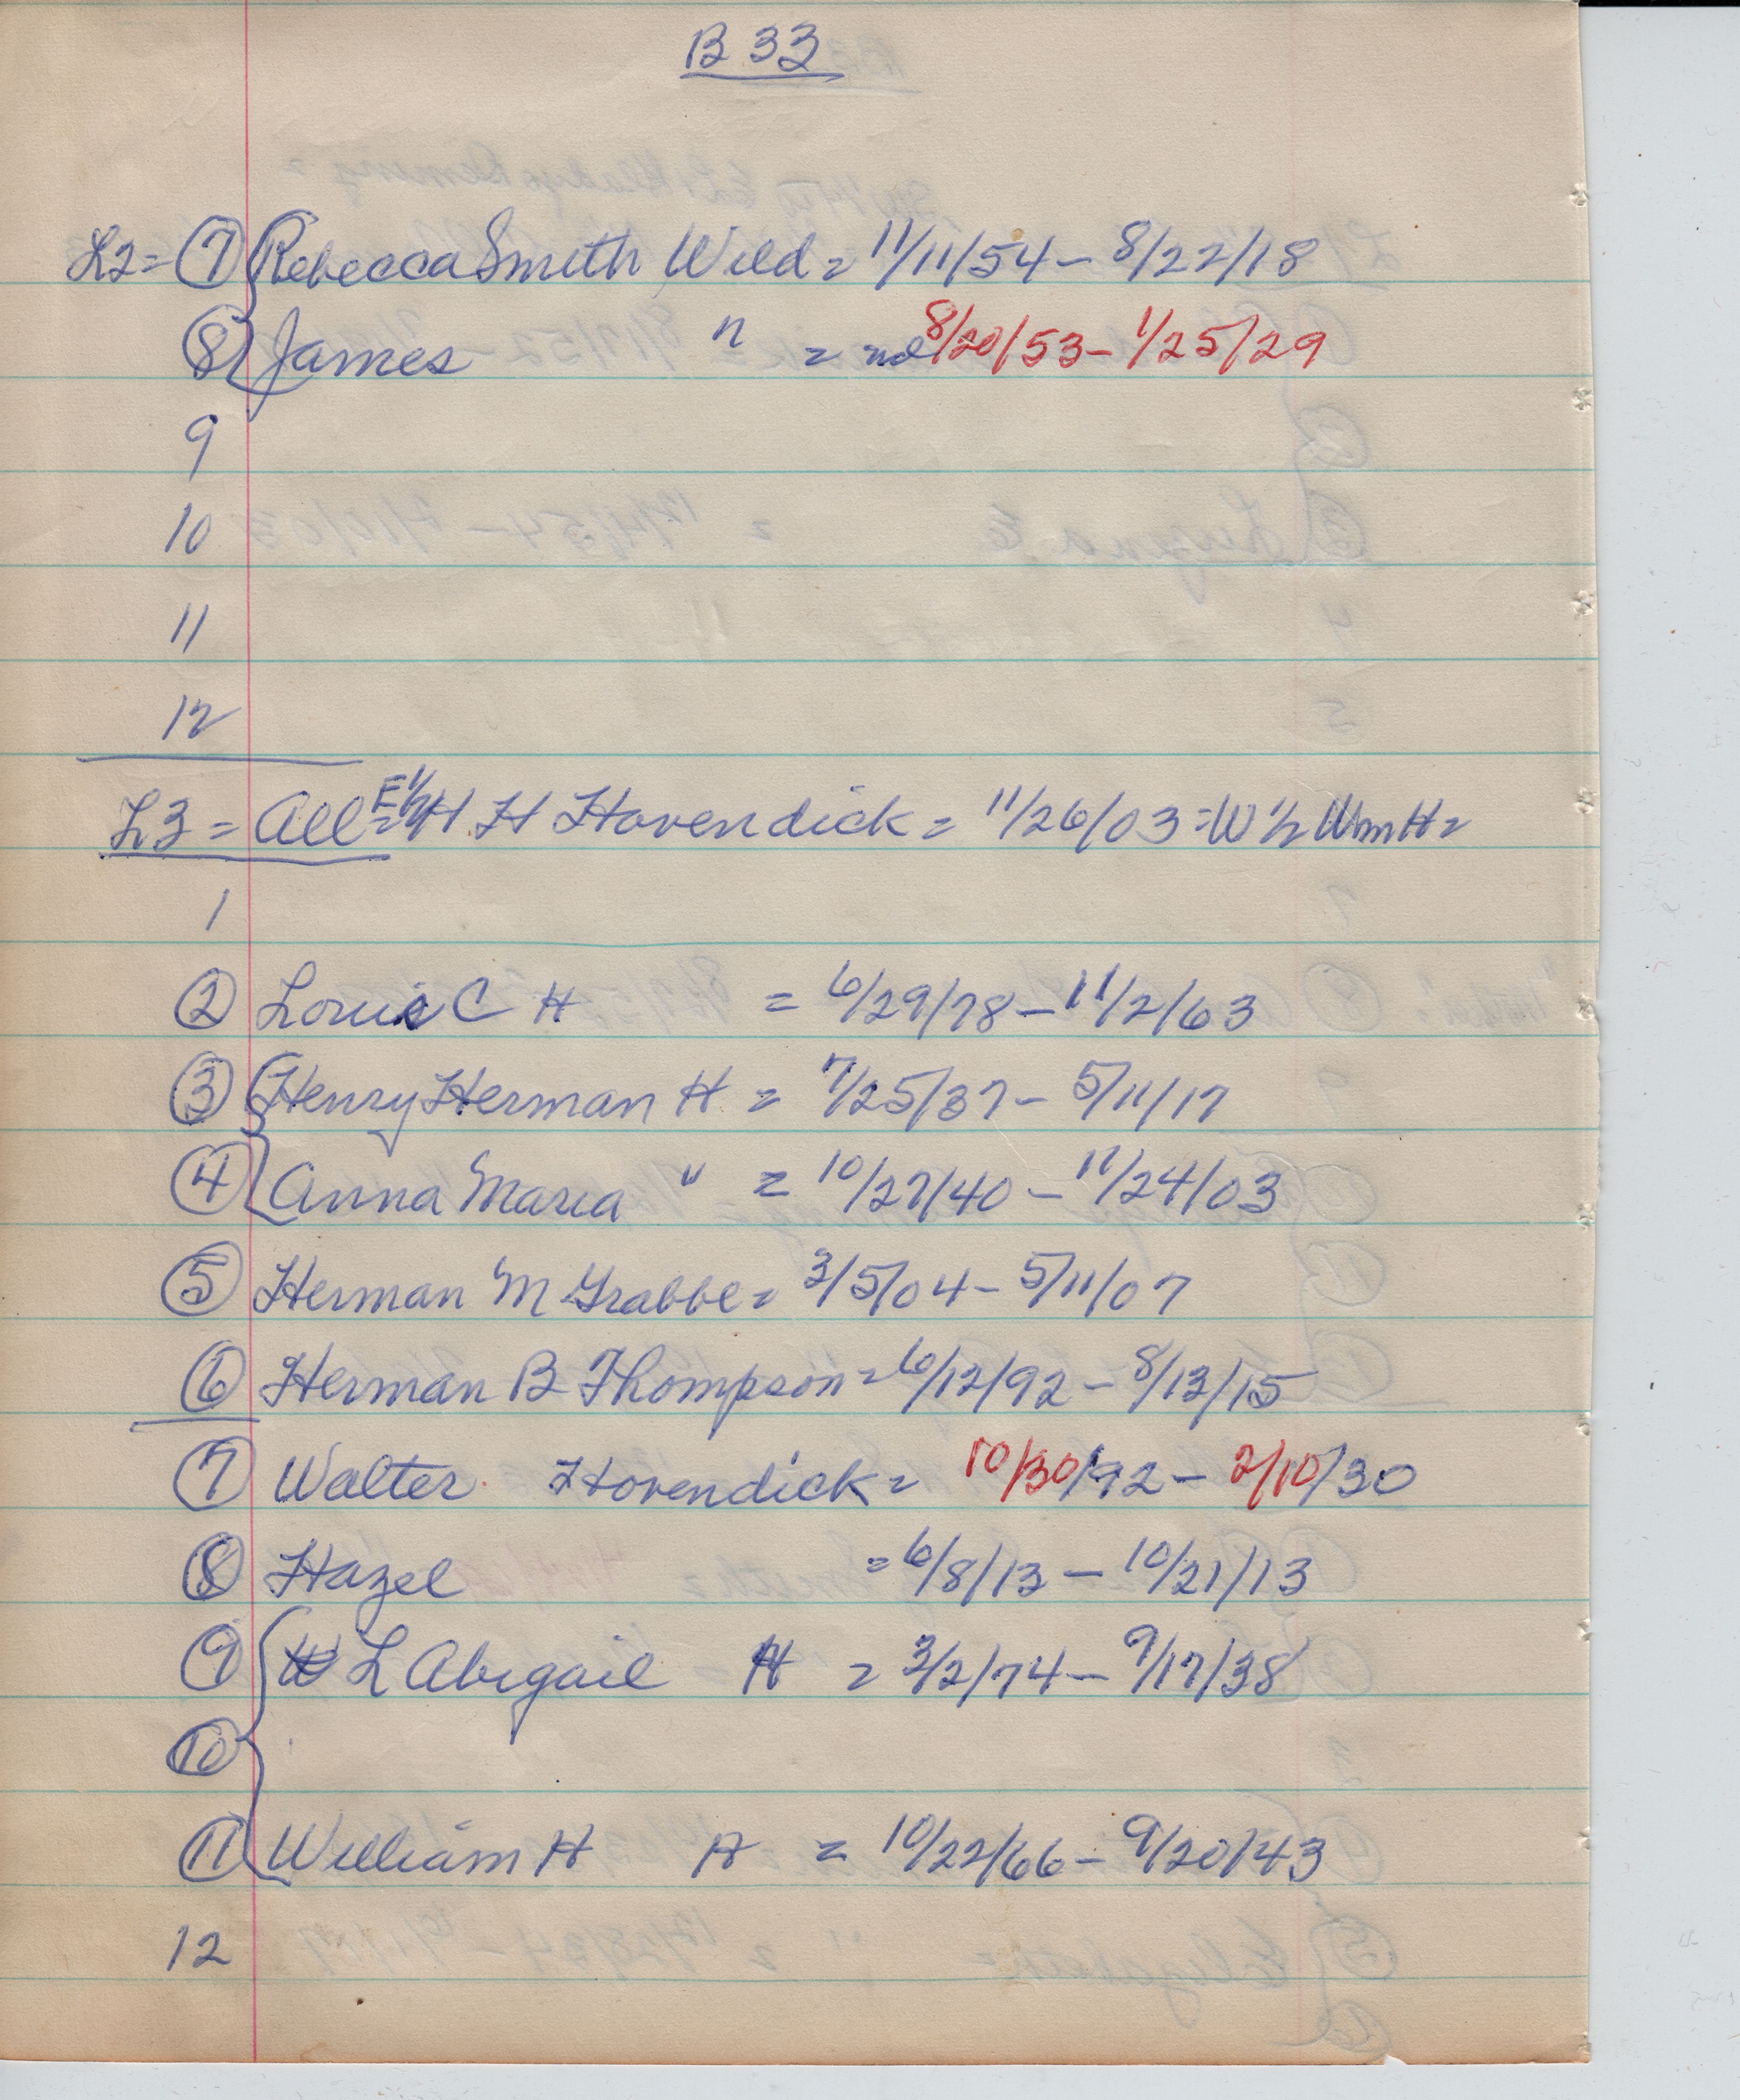 B 33
L2 = 7 Rebecca Smith Wild = 11/11/54 - 8/22/18
8 James " = nd 8/20/53 - 1/25/29
9
10
11
12
L3 = All = E 1/2 H H Hovendick = 11/26/03 = W 1/2 Wm H =
1
2 Louis C H = 6/29/78 - 11/2/63
3 Henry Herman H = 7/25/37 - 5/11/17
4 Anna Maria " = 10/27/40 - 11/24/03
5 Herman M Grabbe = 3/5/04 - 5/11/07
6 Herman B Thompson = 6/12/92 - 8/13/15
7 Walter Hovendick = 10/30/92 - 2/10/30
8 Hazel = 6/8/13 - 10/21/13
9 L Abigail H = 3/2/74 - 9/17/38
10
11 William H H = 10/22/66 - 9/20/43
12